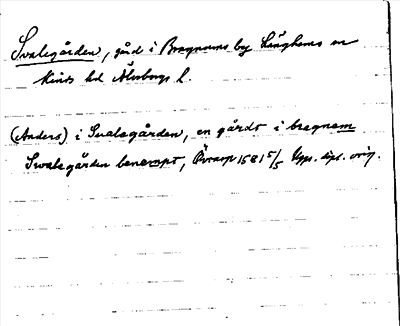 Svalegården, gård i Bragnums by Länghems sn
Kinds hd Älvsborgs l.
(Anders) i Sualegården, en gårdt i bragnem
Swalegården benempt, 1581 5/5 Upps. dipl. orig.